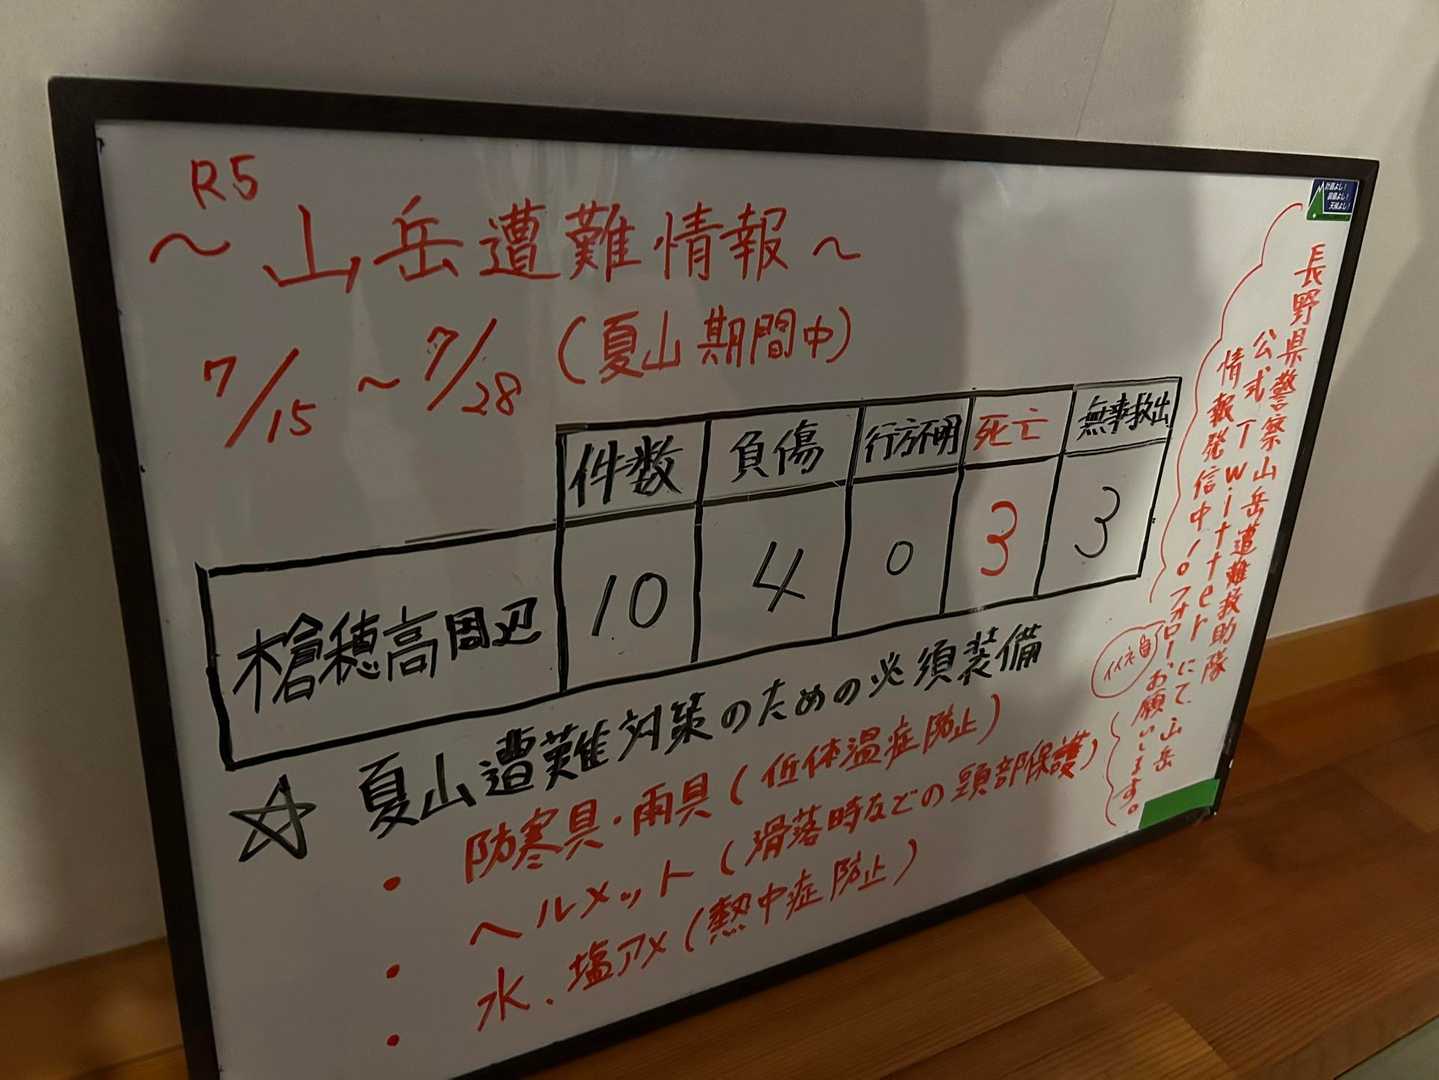 R5
～山岳遭難情報～
7/15～7/28（夏山期間中）
件数 負傷 行方不明 死亡 無事救出
槍穂高周辺 10 4 0 3 3
☆ 夏山遭難対策のための必須装備
・防寒具・雨具（低体温症防止）
・ヘルメット（滑落時などの頭部保護）
・水、塩アメ（熱中症防止）
長野県警察山岳遭難救助隊
公式Twitterにて、山岳
情報発信中!。フォローお願いします。
イイネ